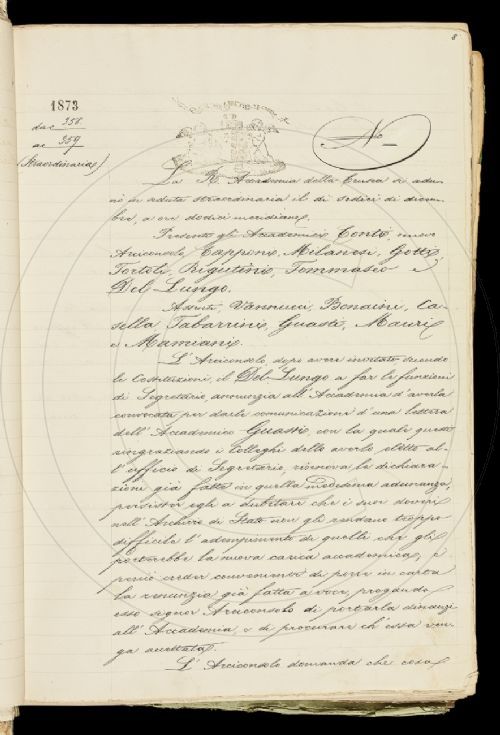 8
1873
dac 358
ac 359
(Straordinaria)
No
La R. Accademia della Crusca si adu-
nò in adata straordinaria il dì sedici di dicem-
bre, a ore dodici meridiane.
Presenti gli Accademici Conti, nuovo
Arciconsolo, Capponi, Milanesi, Gotti,
Tortoli, Rigutini, Tommaseo e
Del Lungo.
Assenti, Vannucci, Bonaini, Ca-
sella, Tabarrini, Guasti, Mauri
e Mamiani.
L'Arciconsolo dopo avere invitato secondo
le Costituzioni, il Del Lungo a far le funzioni
di Segretario, annunzia all'Accademia d'averla
convocata per darle comunicazione d'una lettera
dell'Accademico Guasti, con la quale questi
ringraziando i Colleghi dello averlo eletto al-
l'ufficio di Segretario, rinnova la dichiara-
zione già fatta in quella medesima adunanza,
persister egli a dubitare che i suoi doveri
nell'Archivio di Stato non gli rendano troppo
difficile l'adempimento di quelli che gli
porterebbe la nuova carica accademica, e
perciò creder conveniente di porre in carta
la renunzia già fatta a voce, pregando
esso signor Arciconsolo di portarla dinanzi
all'Accademia, e di procurare ch'essa ven-
ga accettata.
L'Arciconsolo domanda che cosa